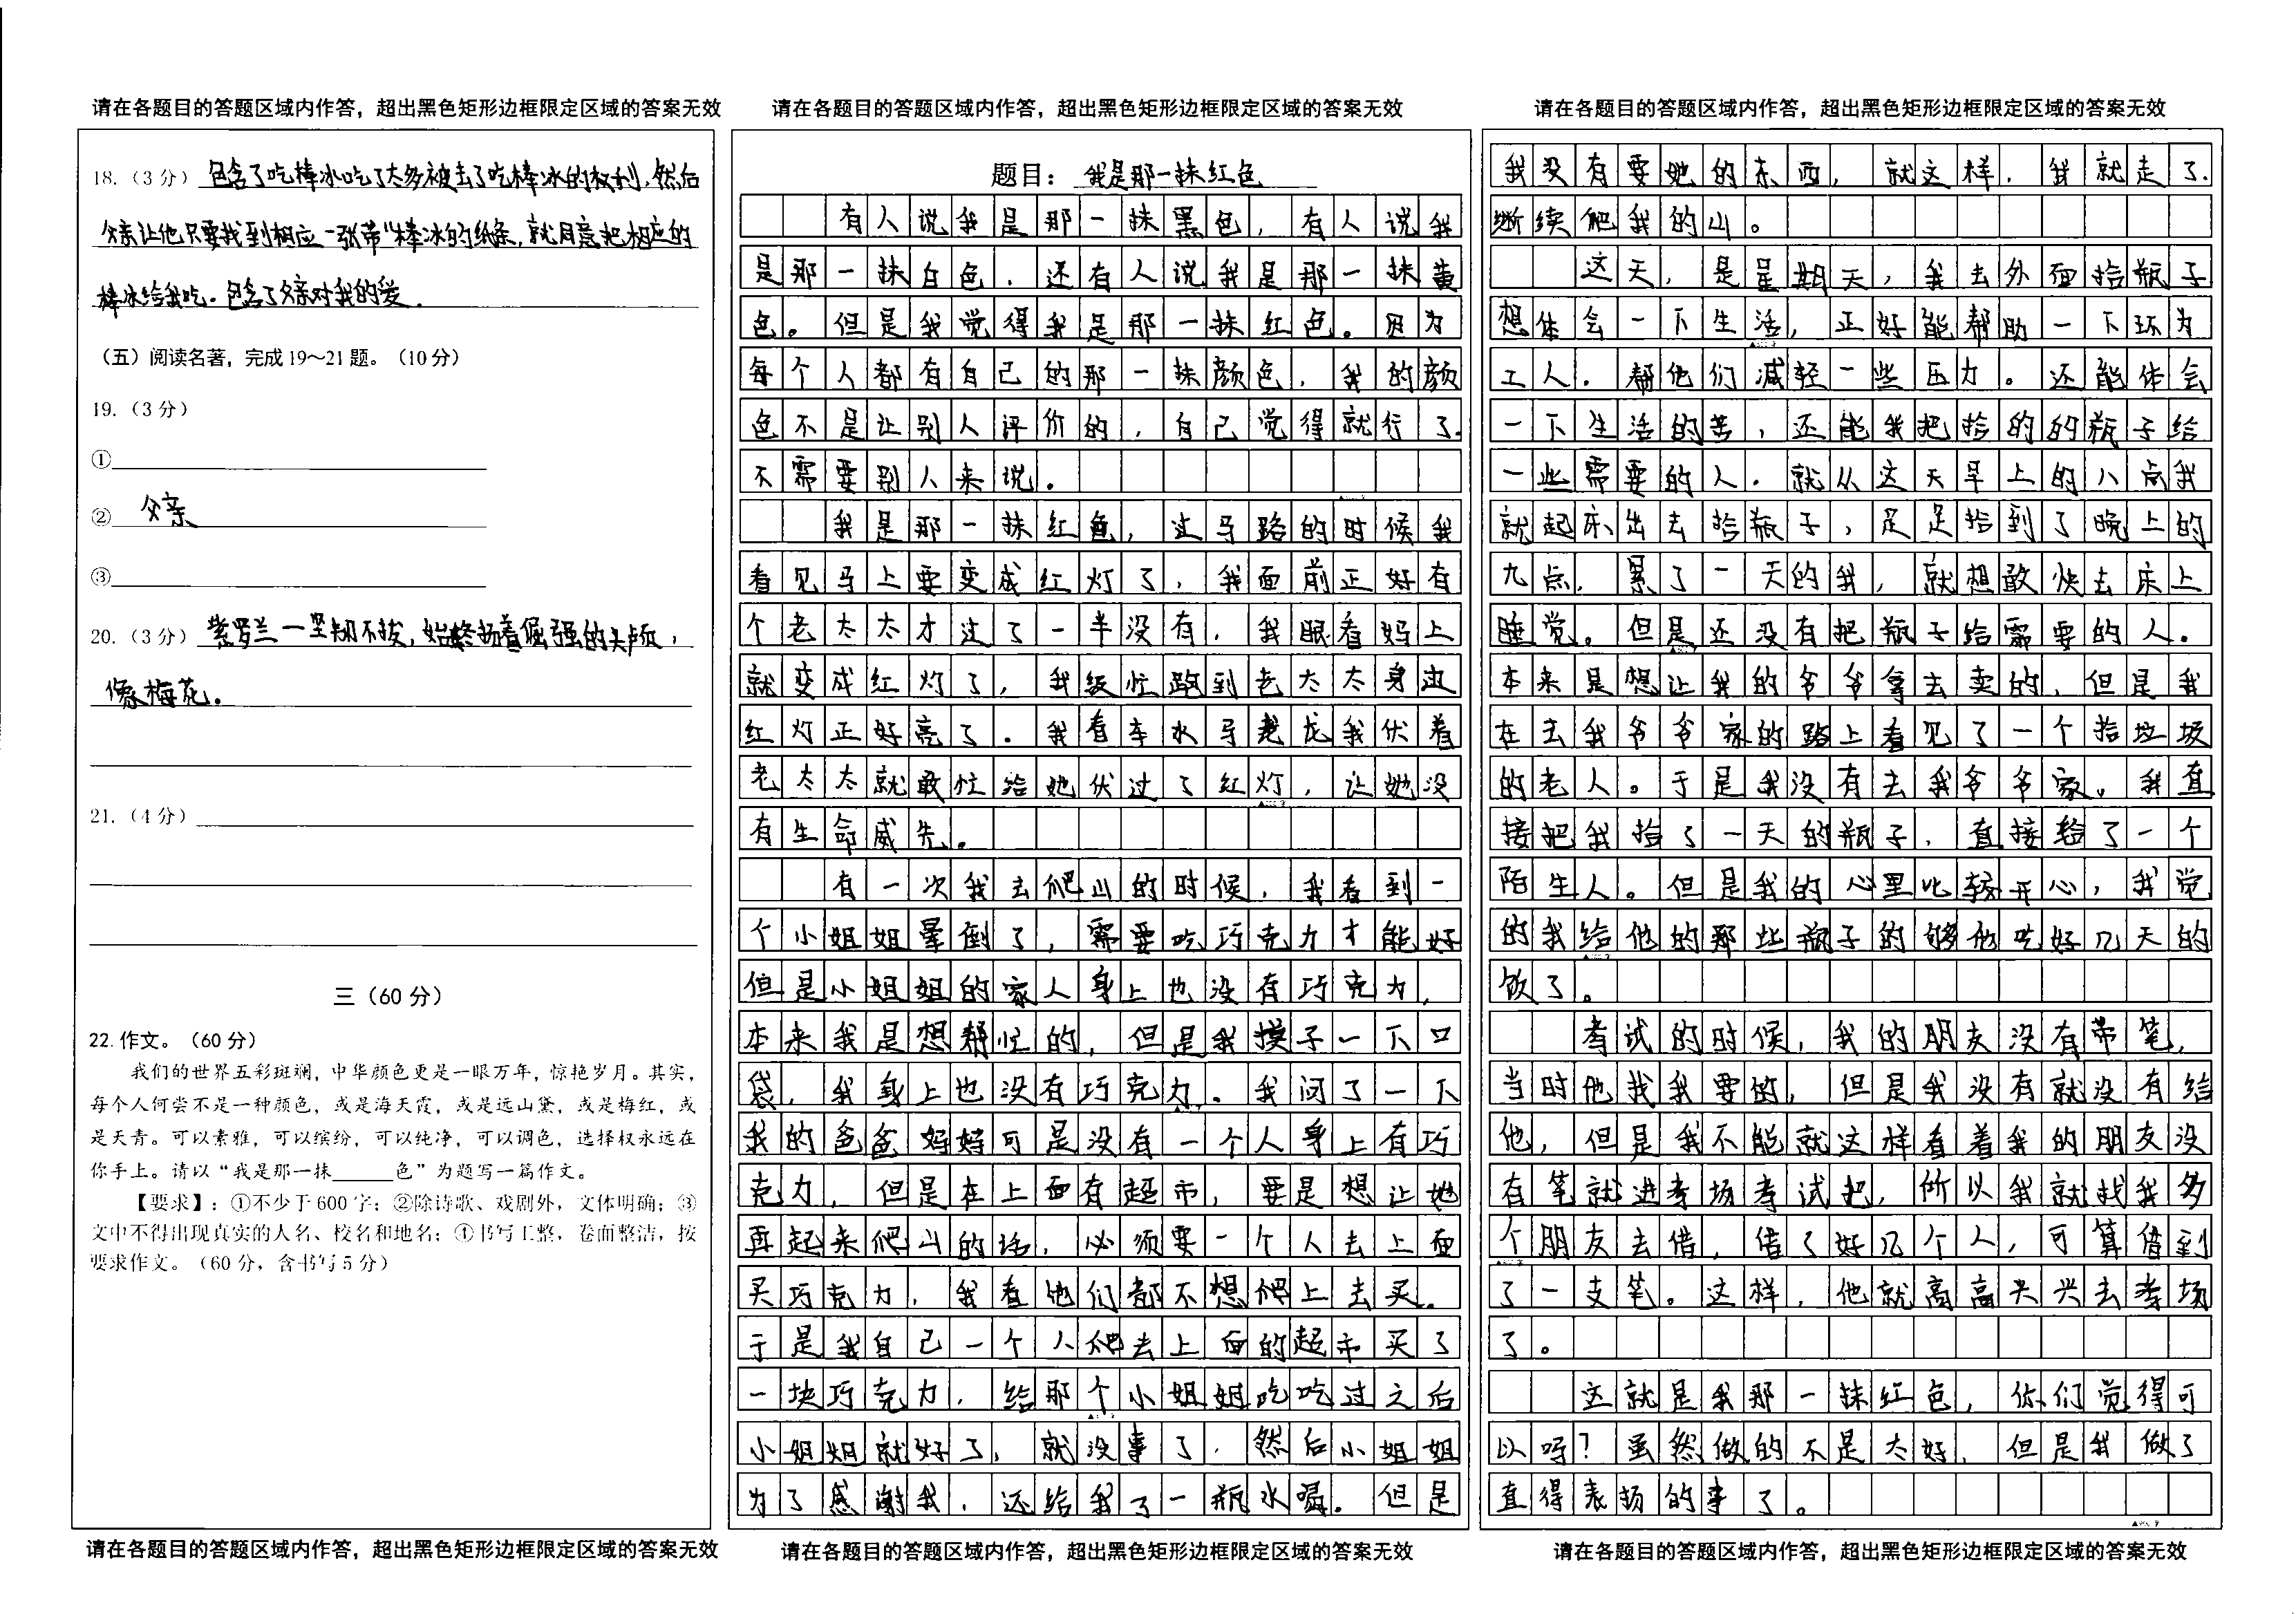 请在各题目的答题区域内作答，超出黑色矩形边框限定区域的答案无效
18.（3 分）包含了吃棒冰吃了太多被去了吃棒冰的权利，然后
父亲让他只要找到相应一张带“棒冰的纸条，就同意把相应的
棒冰给我吃。包含了父亲对我的爱．
（五）阅读名著，完成 19～21 题。（10 分）
19.（3 分）
①
② 父亲
③
20.（3 分）紫罗兰一坚韧不拔，始终扬着倔强的头颅，
像梅花。
21.（4 分）
三（60 分）
22.作文。（60 分）
我们的世界五彩斑斓，中华颜色更是一眼万年，惊艳岁月。其实，
每个人何尝不是一种颜色，或是海天霞，或是远山黛，或是梅红，或
是天青。可以素雅，可以缤纷，可以纯净，可以调色，选择权永远在
你手上。请以“我是那一抹______色”为题写一篇作文。
【要求】：①不少于 600 字；②除诗歌、戏剧外，文体明确；③
文中不得出现真实的人名、校名和地名；④书写工整，卷面整洁，按
要求作文。（60 分，含书写 5 分）
请在各题目的答题区域内作答，超出黑色矩形边框限定区域的答案无效
请在各题目的答题区域内作答，超出黑色矩形边框限定区域的答案无效
题目：我是那一抹红色
有人说我是那一抹黑色，有人说我
是那一抹白色．还有人说我是那一抹黄
色。但是我觉得我是那一抹红色。因为
每个人都有自己的那一抹颜色，我的颜
色不是让别人评价的，自己觉得就行了．
不需要别人来说．
我是那一抹红色，过马路的时候我
看见马上要变成红灯了，我面前正好有
个老太太才过了一半没有．我眼看妈上
就变成红灯了，我级忙跑到老太太身边
红灯正好亮了．我看车水马龙我伏着
老太太就敢忙给她伏过了红灯，让她没
有生命威先．
有一次我去爬山的时候，我看到一
个小姐姐晕倒了，需要吃巧克力才能好
但是小姐姐的家人身上也没有巧克力，
本来我是想帮忙的，但是我摸子一下口
袋，我身上也没有巧克力．我问了一下
我的爸爸妈妈可是没有一个人身上有巧
克力，但是在上面有超市，要是想让她
再起来爬山的话，必须要一个人去上面
买巧克力，我看他们都不想爬上去买．
于是我自己一个人爬去上面的超市买了
一块巧克力，给那个小姐姐吃吃过之后
小姐姐就好了，就没事了．然后小姐姐
为了感谢我，还给我了一瓶水喝．但是
请在各题目的答题区域内作答，超出黑色矩形边框限定区域的答案无效
请在各题目的答题区域内作答，超出黑色矩形边框限定区域的答案无效
我没有要她的东西，就这样．我就走了．
断续爬我的山。
这天，是星期天，我去外面拾瓶子
想体会一下生活，正好能帮助一下环为
工人．帮他们减轻一些压力。还能体会
一下生活的苦，还能我把拾的的瓶子给
一些需要的人．就从这天早上的八点我
就起床出去拾瓶子，足足拾到了晚上的
九点，累了一天的我，就想敢快去床上
睡觉。但是还没有把瓶子给需要的人．
本来是想让我的爷爷拿去卖的，但是我
在去我爷爷家的路上看见了一个拾垃圾
的老人。于是我没有去我爷爷家，我直
接把我拾了一天的瓶子，直接给了一个
陌生人。但是我的心里比较开心，我觉
的我给他的那些瓶子的够他吃好几天的
饭了。
考试的时候，我的朋友没有带笔，
当时他找我要的，但是我没有就没有给
他，但是我不能就这样看着我的朋友没
有笔就进考场考试把，所以我就找我多
个朋友去借，借了好几个人，可算借到
了一支笔。这样，他就高高兴兴去考场
了。
这就是我那一抹红色，你们觉得可
以吗？虽然做的不是太好，但是我做了
直得表扬的事了。
请在各题目的答题区域内作答，超出黑色矩形边框限定区域的答案无效